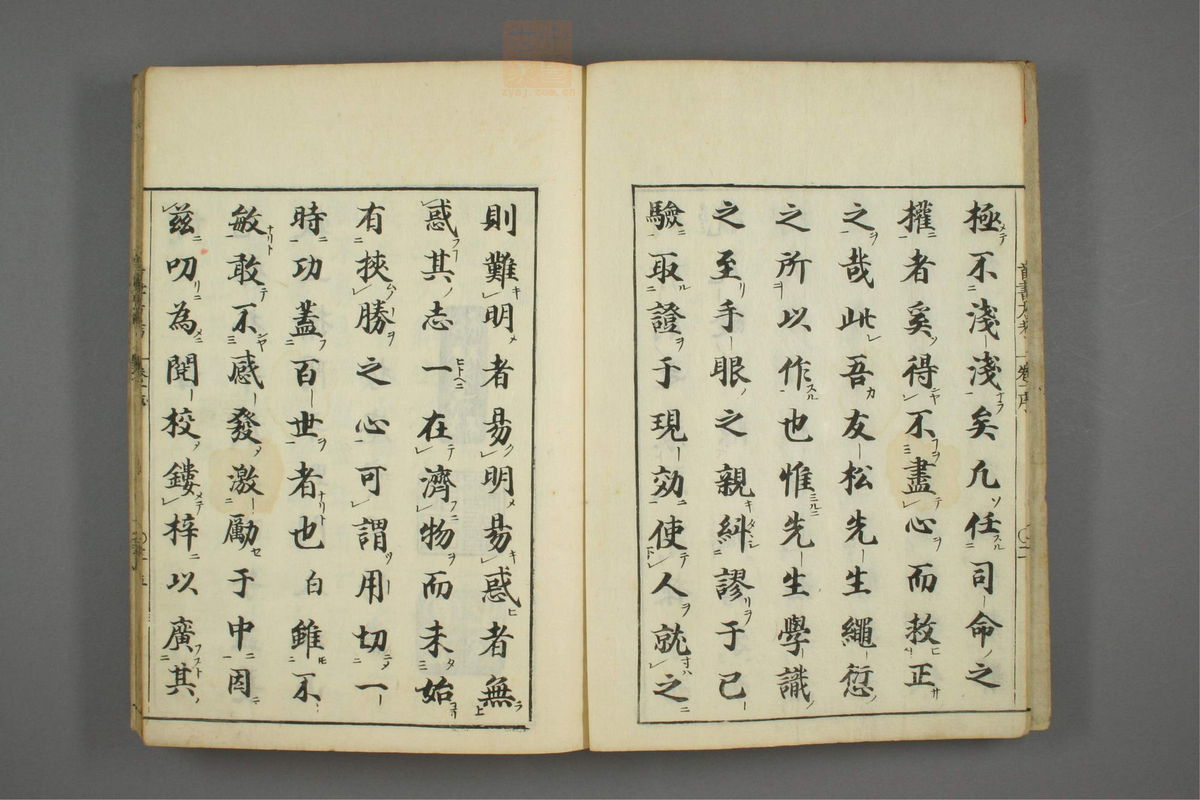 極不淺淺矣凢任司命之
權者奚得不盡心而救正
之哉此吾友松先生繩愆
之所以作也惟先生學識
之至手眼之親糾謬于已
驗取證于現効使人就之
則難明者易明易惑者無
惑其志一在濟物而未始
有挾勝之心可謂用切一
時功蓋百世者也白雖不
敏敢不感發激勵于中因
兹叨為閱校鏤梓以廣其